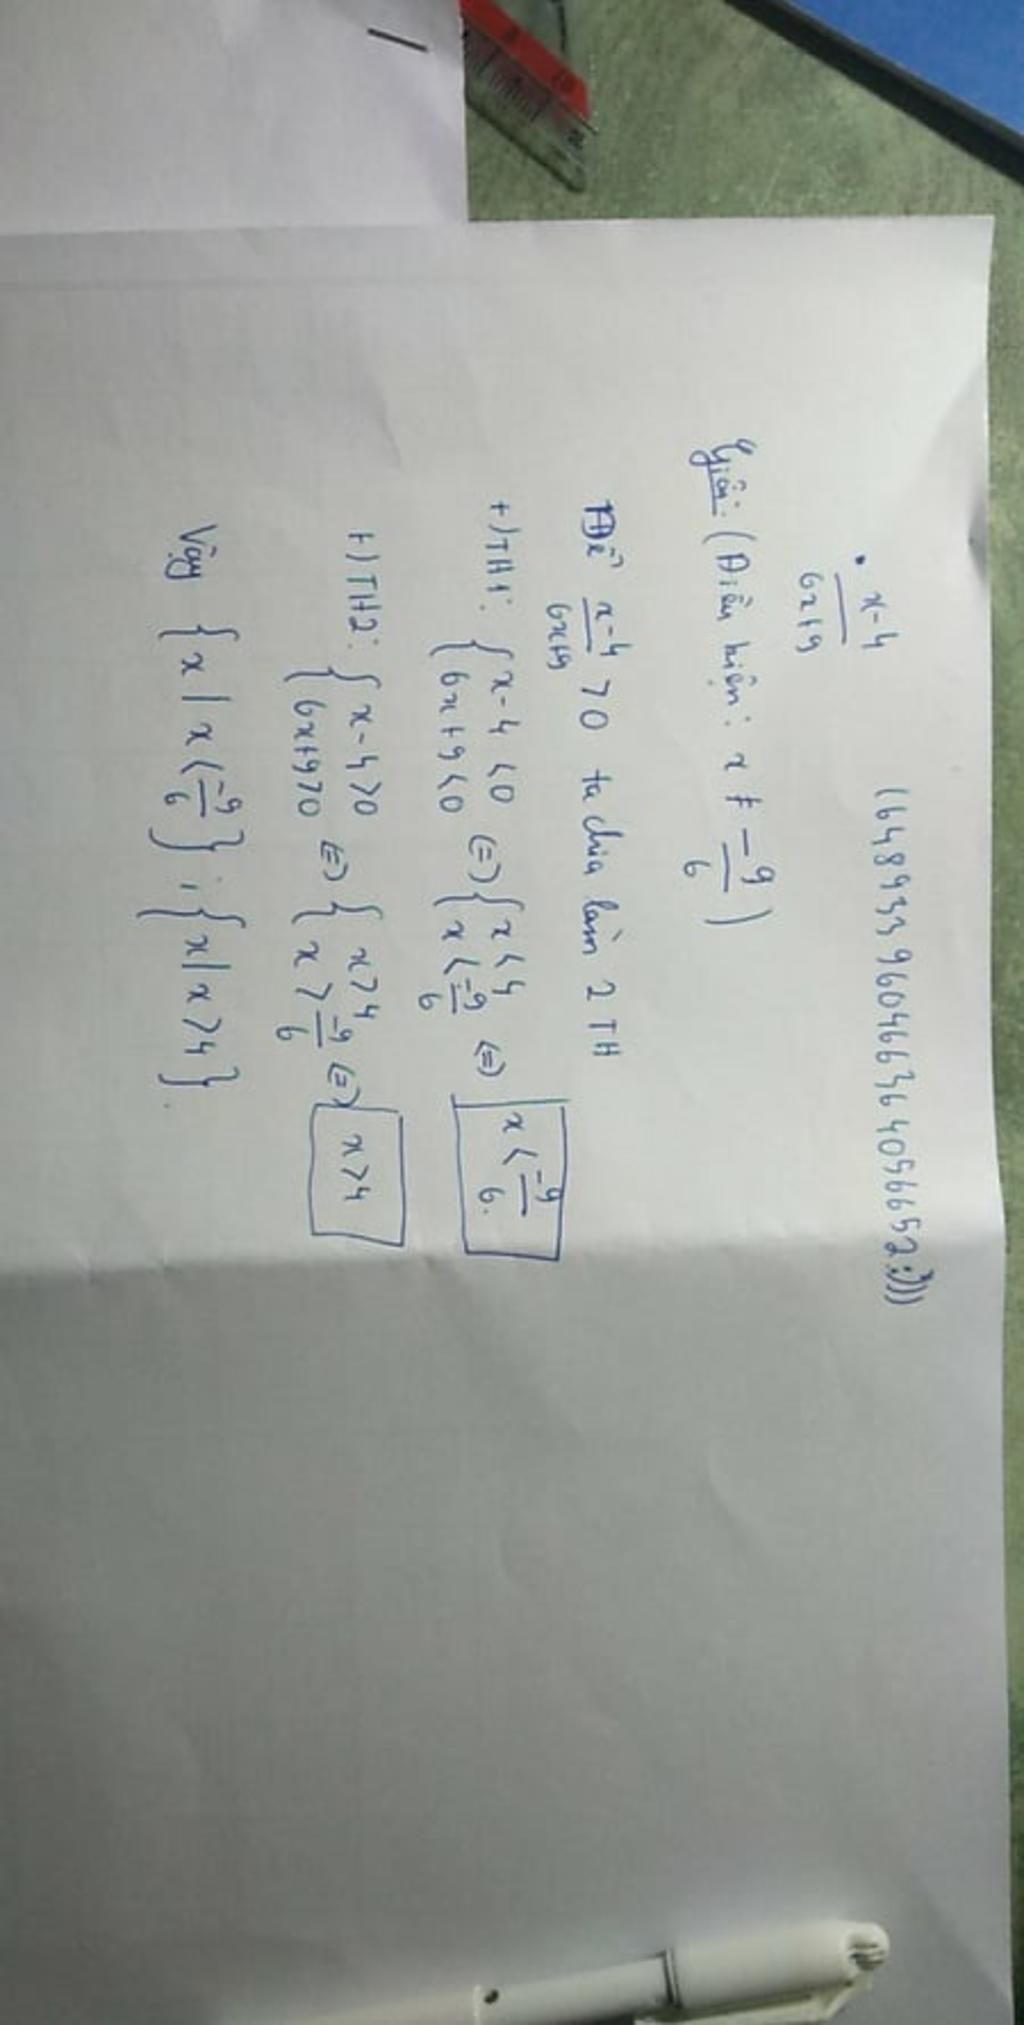 • x-4 / 6x+9 (1648933960466364056652:)))
Giải: (Điều kiện: x ≠ -9/6)
Để x-4 / 6x+9 >0 ta chia làm 2 TH
+) TH1: { x-4 <0 ; 6x+9 <0 (=) { x<4 ; x< -9/6 (=) x< -9/6.
+) TH2: { x-4>0 ; 6x+9>0 (=) { x>4 ; x> -9/6 (=) x>4
Vậy {x | x< -9/6}; {x | x>4}.